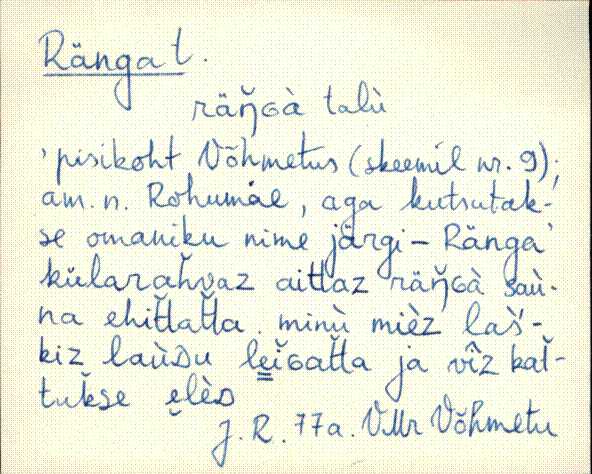 Ränga t.
räŋ̆ɢà talù
'pisikoht Võhmetus (skeemil nr. 9);
am. n. Rohumäe, aga kutsutak-
se omaniku nime järgi – Ränga'
külarah̆vaz aittaz räŋ̆ɢà saù-
na ehit̆tat̆ta. minù mièz laš-
kiz laùᴅu lei̮ɢat̆ta ja vîz kat̆-
tuk̆se e̮lèᴅ
J. R. 77a. VMr Võhmetu